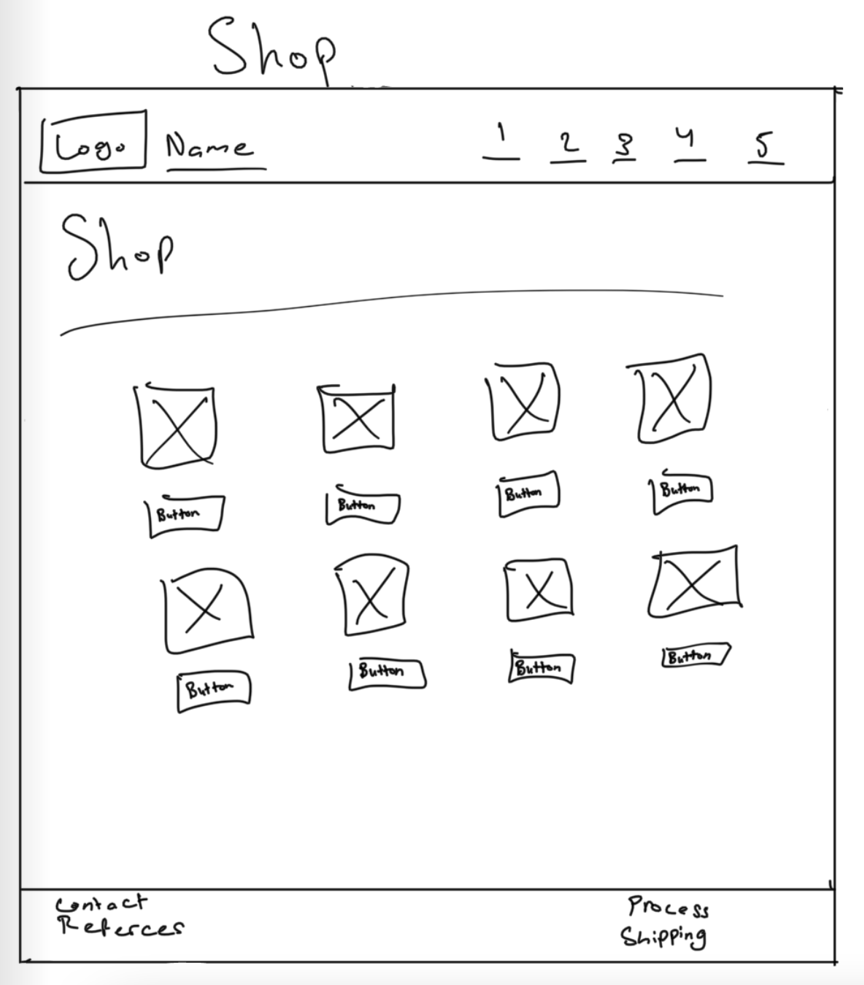 Shop
Logo Name 1 2 3 4 5
Shop
Button Button Button Button
Button Button Button Button
Contact Process
Referces Shipping